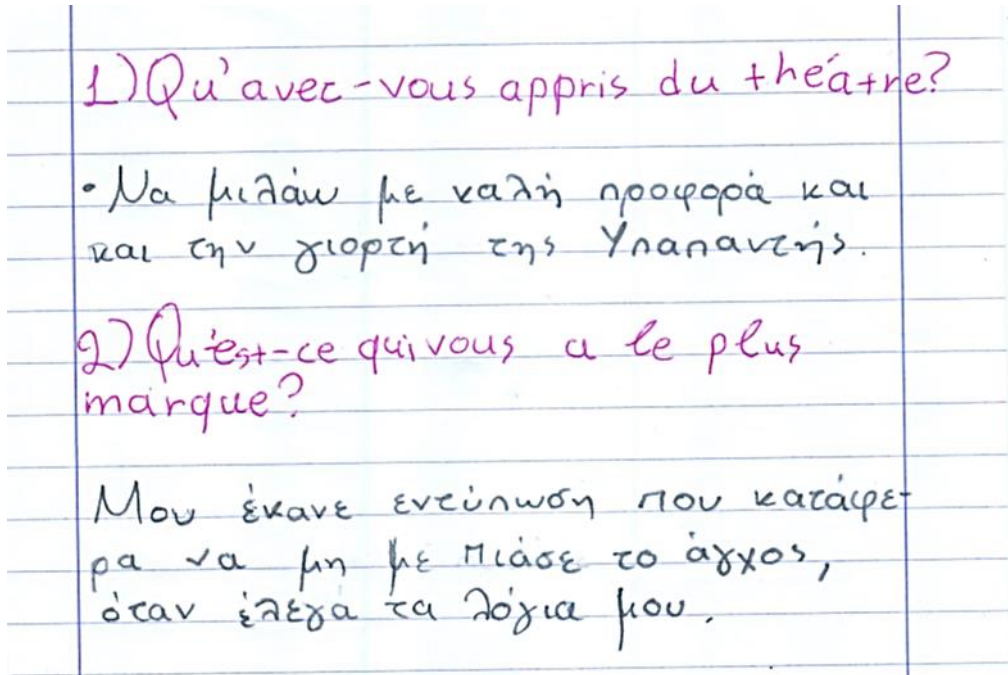 1) Qu'avec-vous appris du théatre?
• Να μιλάω με καλή προφορά και
και την γιορτή της Υπαπαντής.
2) Qu'est-ce qui vous a le plus
marque?
Μου έκανε εντύπωση που κατάφε-
ρα να μη με πιάσε το άγχος,
όταν έλεγά τα λόγια μου.